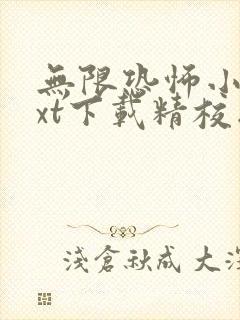 無限恐怖小
xt下載精校
淺倉秋成 大深